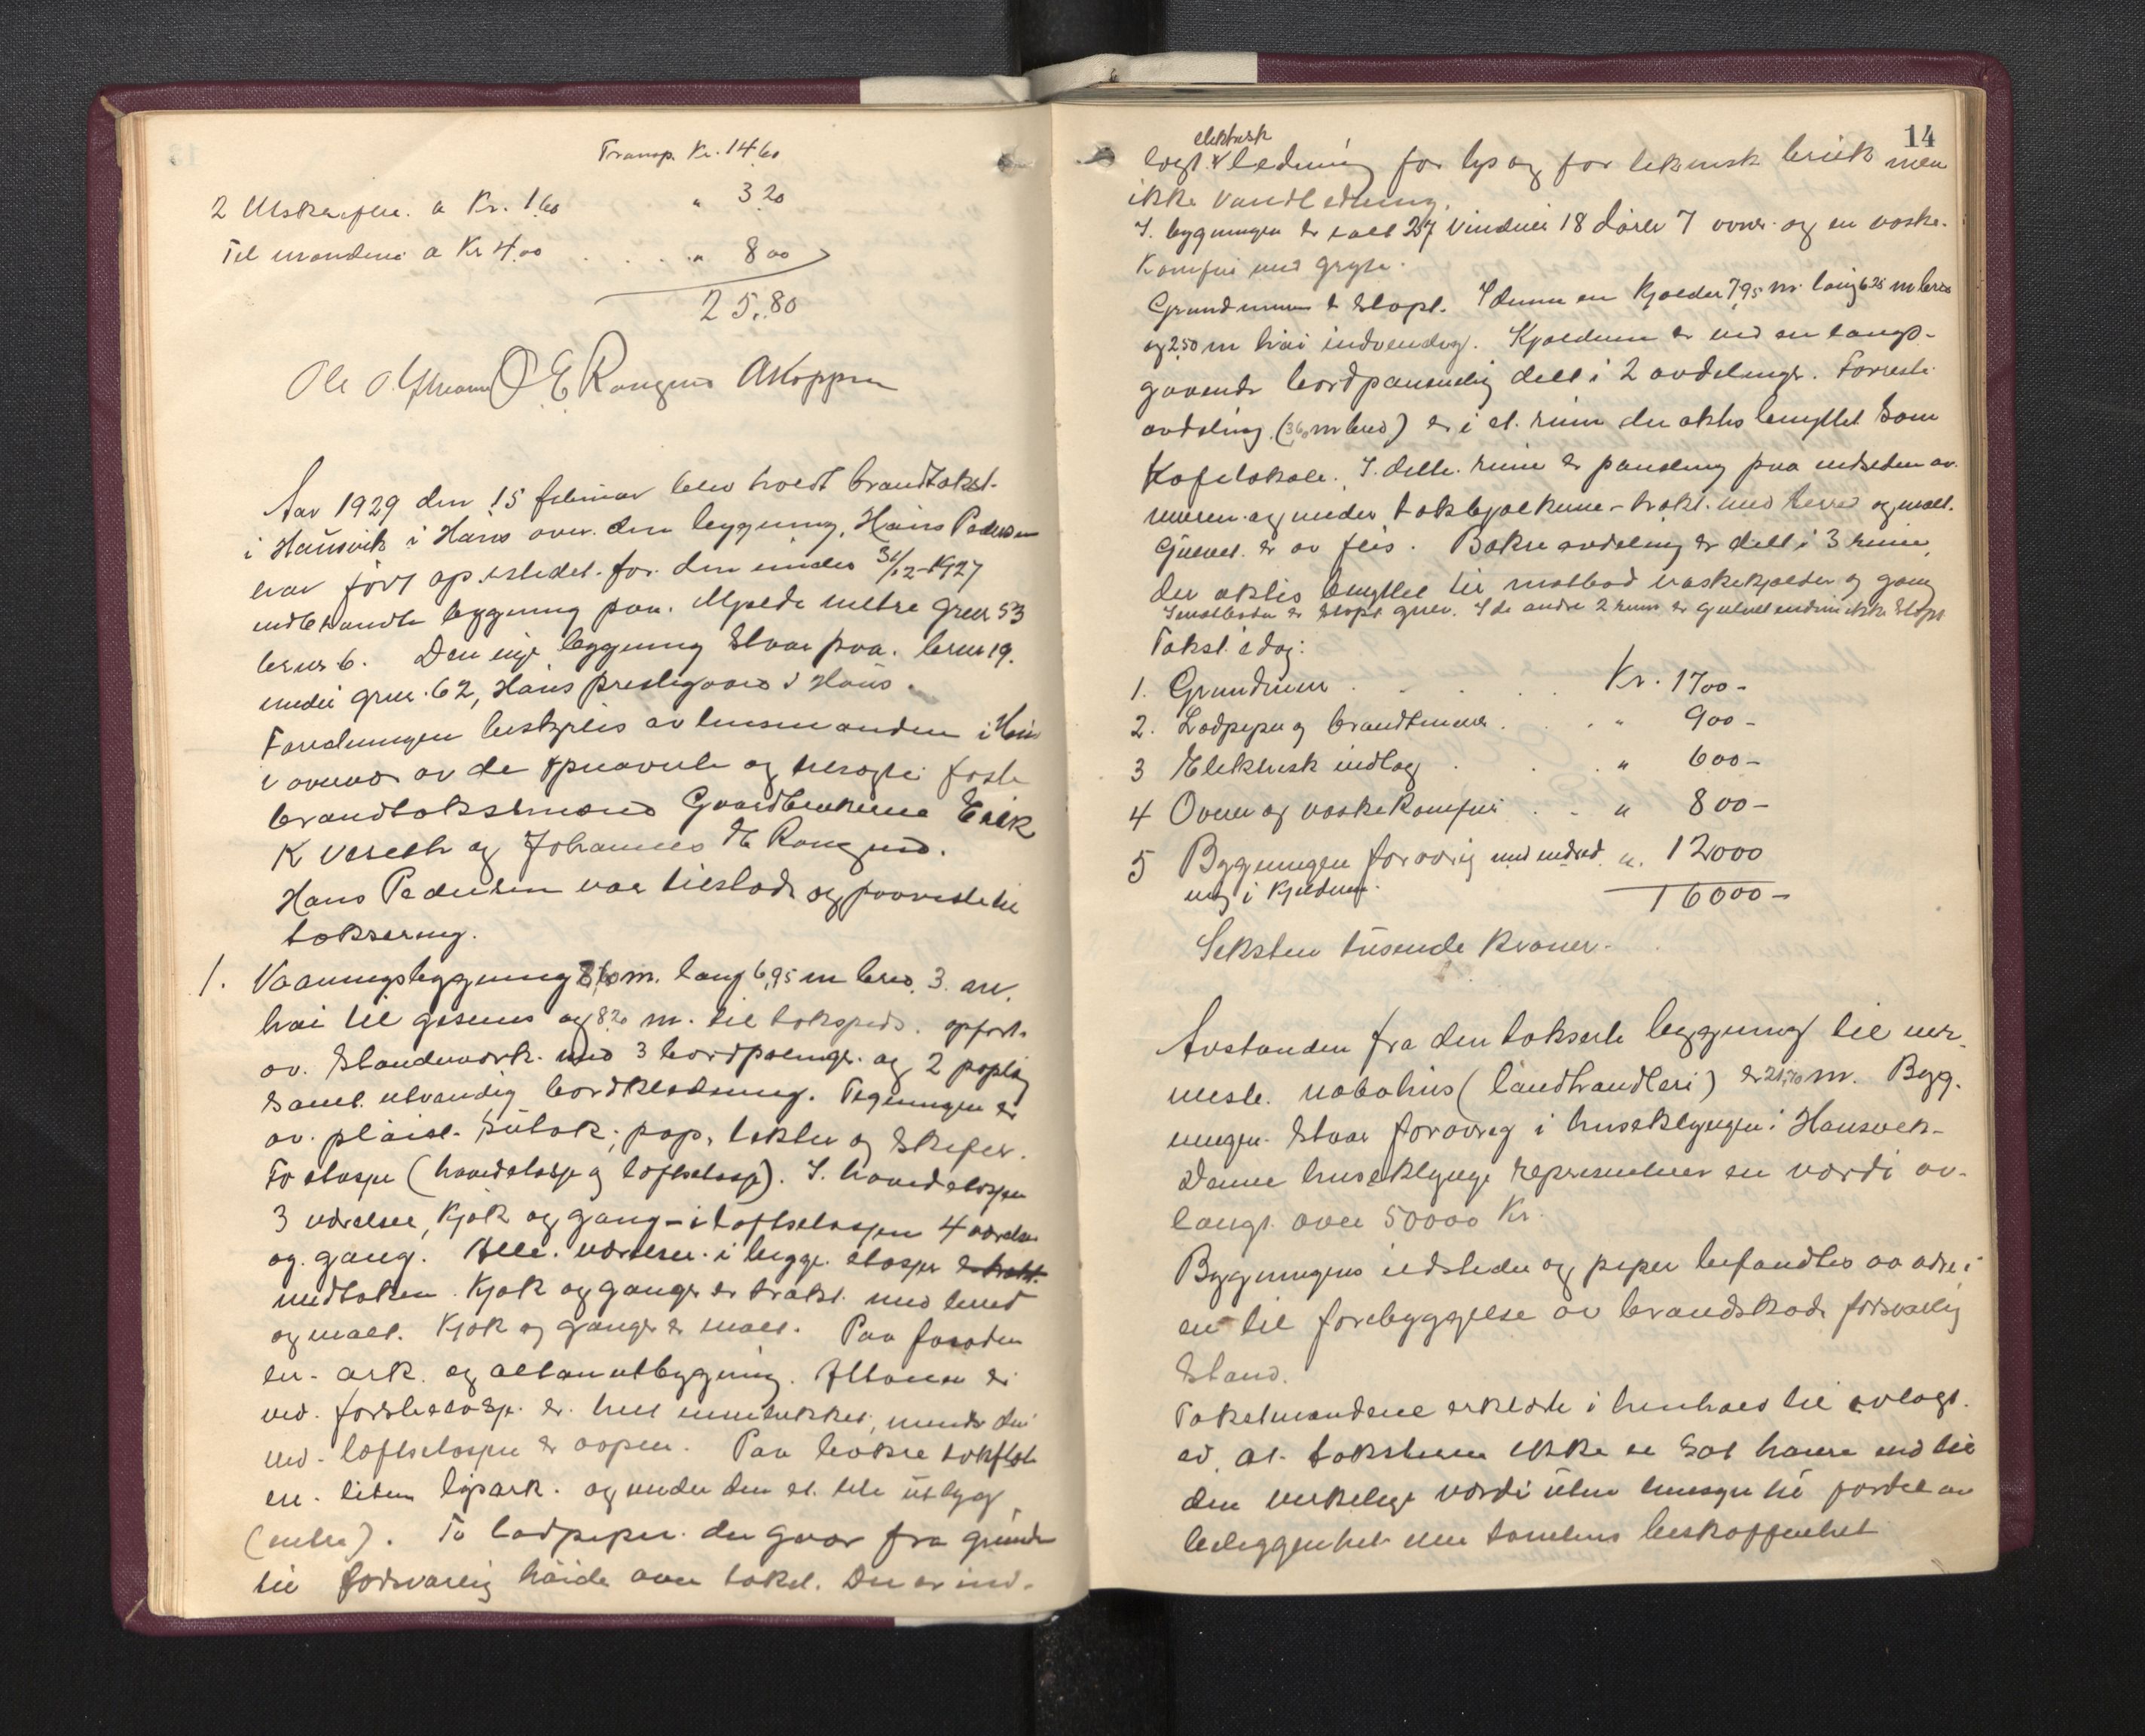 Transp. Kr. 14.60
2 Utskrifter. a Kr. 1.60 " 3.20
Til mændene a Kr 4.00 . . . . " 8.00
25.80
Ole O. O E Rongved AKoppen
Aar 1929 den 15 februar blev holdt brandtakst
i Hausvik i Haus over den bygning, Hans Pedersen
har ført op istedet for den under 31/12-1927
nedbrændte bygning paa Mjelde yttre gnr 53
brnr 6. Den nye bygning staar paa brnr 19
under gnr. 62, Haus prestegaard i Haus.
Forretningen bestyres av lensmanden i Haus
i overvær av de opnævnte og tilsagte faste
brandtakstmænd Gaardbrukerne Erik
K Veseth og Johannes E Rongved.
Hans Pedersen var tilstede og paaviste til
taksering.
1. Vaaningsbygning 8,60 m. lang 6,95 m bred, 3. m.
høi til gesims og 8.20 m. til takspids. opført
av Standerverk med 3 bordpælinger og 2 paplag
samt utvendig bordklædning. Tegningen er
av pløiet Sutak, pap, lekter og Skifer.
To etasjer (hovedetasje og loftsetasje). I hovedetasjen
3 værelser, kjøk og gang - i loftsetasjen 4 værelser
og gang. Alle værelser i begge etasjer er trukt
med taken. Kjøk og ganger er trukt med lerred
og malt. Kjøk og ganger er malt. Paa fasaden
en ark og altanutbygning. Altanen er
ved første etasje er helt indelukket, mens den
ved loftsetasjen er aapen. Paa bakre takflate
en liten lysark og under den et lite utbygg
(entre). To ladpiper der gaar fra grund
til forsvarlig høide over taket. Der er ind-
14
lagt elektrisk ledning for lys og for teknisk bruk men
ikke vandledning.
I bygningen er ialt 27 vinduer 18 dører 7 ovner og en vaske-
komfur med gryte.
Grundmuren er støpt. I denne en kjælder 7,95 m lang 6.25 m bred
og 2,50 m høi indvendig. Kjælderen er ved en langs-
gaaende bordpanneling delt i 2 avdelinger. Forreste
avdeling (3,60 m bred) er i et rum der aktes benyttet som
Kafelokale. I dette rum er panneling paa indsiden av
muren og under takbjælkene - trukt med lerred og malt.
Gulvet er av flis. Bakre avdeling er delt i 3 rum,
der aktes benyttet til matbod vaskekjælder og gang
I matboden er støpt gulv. I de andre 2 rum er gulvet endnu ikke støpt
Takst idag:
1. Grundmur . . . . Kr. 1700 -
2. Ladpiper og brandmurer . . . " 900 -
3 Elektrisk indlag . . . " 600 -
4 Ovner og vaskekomfur . . " 800 -
5 Bygningen forøvrig med indred- " 12000
ning i kjelderen. 16000 -
Seksten tusende kroner.
Avstanden fra den takserte bygning til nær-
meste nabohus (landhandleri) er 21,70 m. Byg-
ningen staar forøvrig i huseklyngen i Hausvik.
Denne huseklynge repræsenterer en værdi av
langt over 50000 Kr.
Bygningens ildsteder og piper befandtes at være i
en til forebyggelse av brandskade forsvarlig
Stand.
Takstmændene erklærte i henhold til avlagt
ed at taksterne ikke er sat høiere end til
den virkelige værdi uten hensyn til fordel av
beliggenhet eller tomtens beskaffenhet